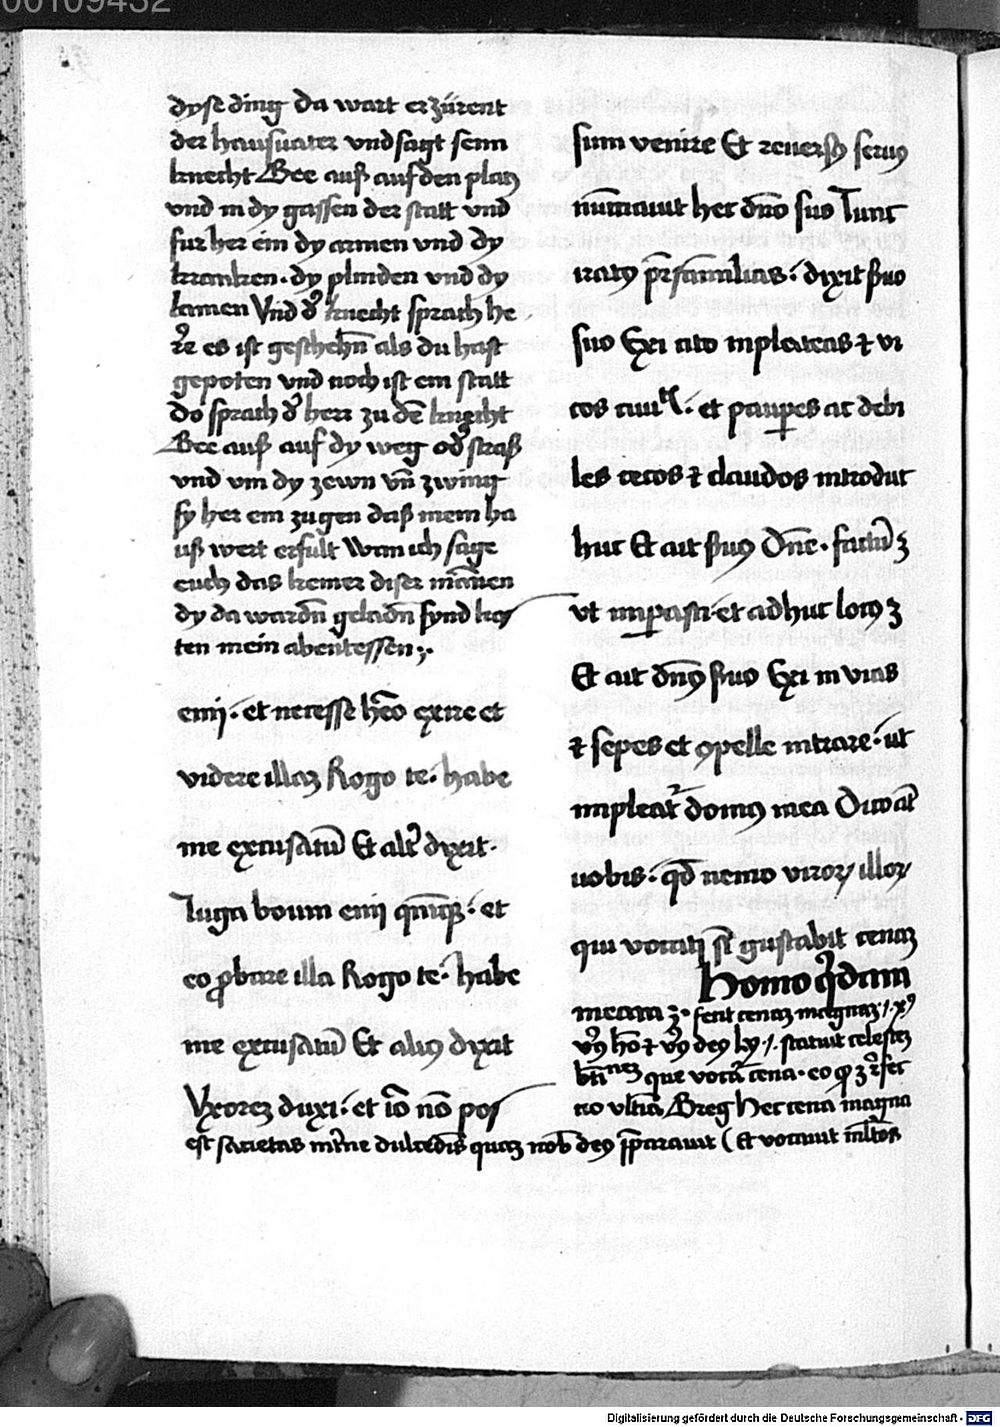 00109432
dyse ding da wart erzürent
der hausuater vnd sagt seim
knecht Gee auß auf den platz
vnd in dy gassen der statt vnd
fur her ein dy armen vnd dy
krancken · dy plinden vnd dy
lamen Vnd dˀ knecht sprach he
rˀe es ist geschehn̄ als du hast
gepoten vnd noch ist ein statt
do sprach dˀ herr zu dē knecht
Gee auß auf dy weg odˀ straß
vnd vm dy zewn vn̄ zwing
sy her ein zu gen daß mein ha
uß wert erfult Wan ich sage
euch das keiner diser mānen
dy da wardn̄ geladn̄ synd kos
ten mein abentessen ;·
emi · et necesse hēo exire et
videre illaꝫ Rogo te · habe
me excusatū Et altˀ dixit ·
Iuga boum emi qīnqꝫ · et
eo ꝓbare illa Rogo te · habe
me excusatū Et aliꝰ dixit
Vxoreꝫ duxi · et iō nō pos
sum venire Et reuersꝰ seruꝰ
nūciauit hec dn̄o suo Tunc
iratꝰ pr̄familias · dixit ẜuo
suo Exi cito in plateas ⁊ vi
cos ciuitꝭ · et pauꝑes ac debi
les cecos ⁊ claudos introduc
huc Et ait ẜuꝰ Dn̄e · factū ꝫ
vt imꝑasti · et adhuc locꝰ ꝫ
Et ait dn̄ꝰ ẜuo Exi in vias
⁊ sepes et ꝯpelle intrare · ut
impleatˀ domꝰ mea Dico āt
uobis · qd̄ nemo viroꝝ illoꝝ
qui vocati st̄ gustabit cenaꝫ
Homo qˀdam
meam ꝫ · fecit cenaꝫ magnaꝫ · i · xꝰ
vꝰ hō ⁊ vꝰ deꝰ
que vocat̄ cena · eo ꝙ ꝫ rˀfec
tio vltīa Greg Hec cena magna
est sacietas īt̄ne dulcedīs quaꝫ nob̄ deꝰ p̄parauit ( Et vocauit ml̄tos
Digitalisierung gefördert durch die Deutsche Forschungsgemeinschaft - DFG